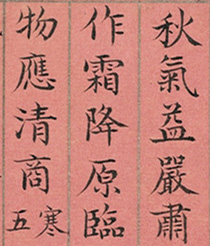 秋氣益嚴肅
作霜降原臨
物應清商
五寒